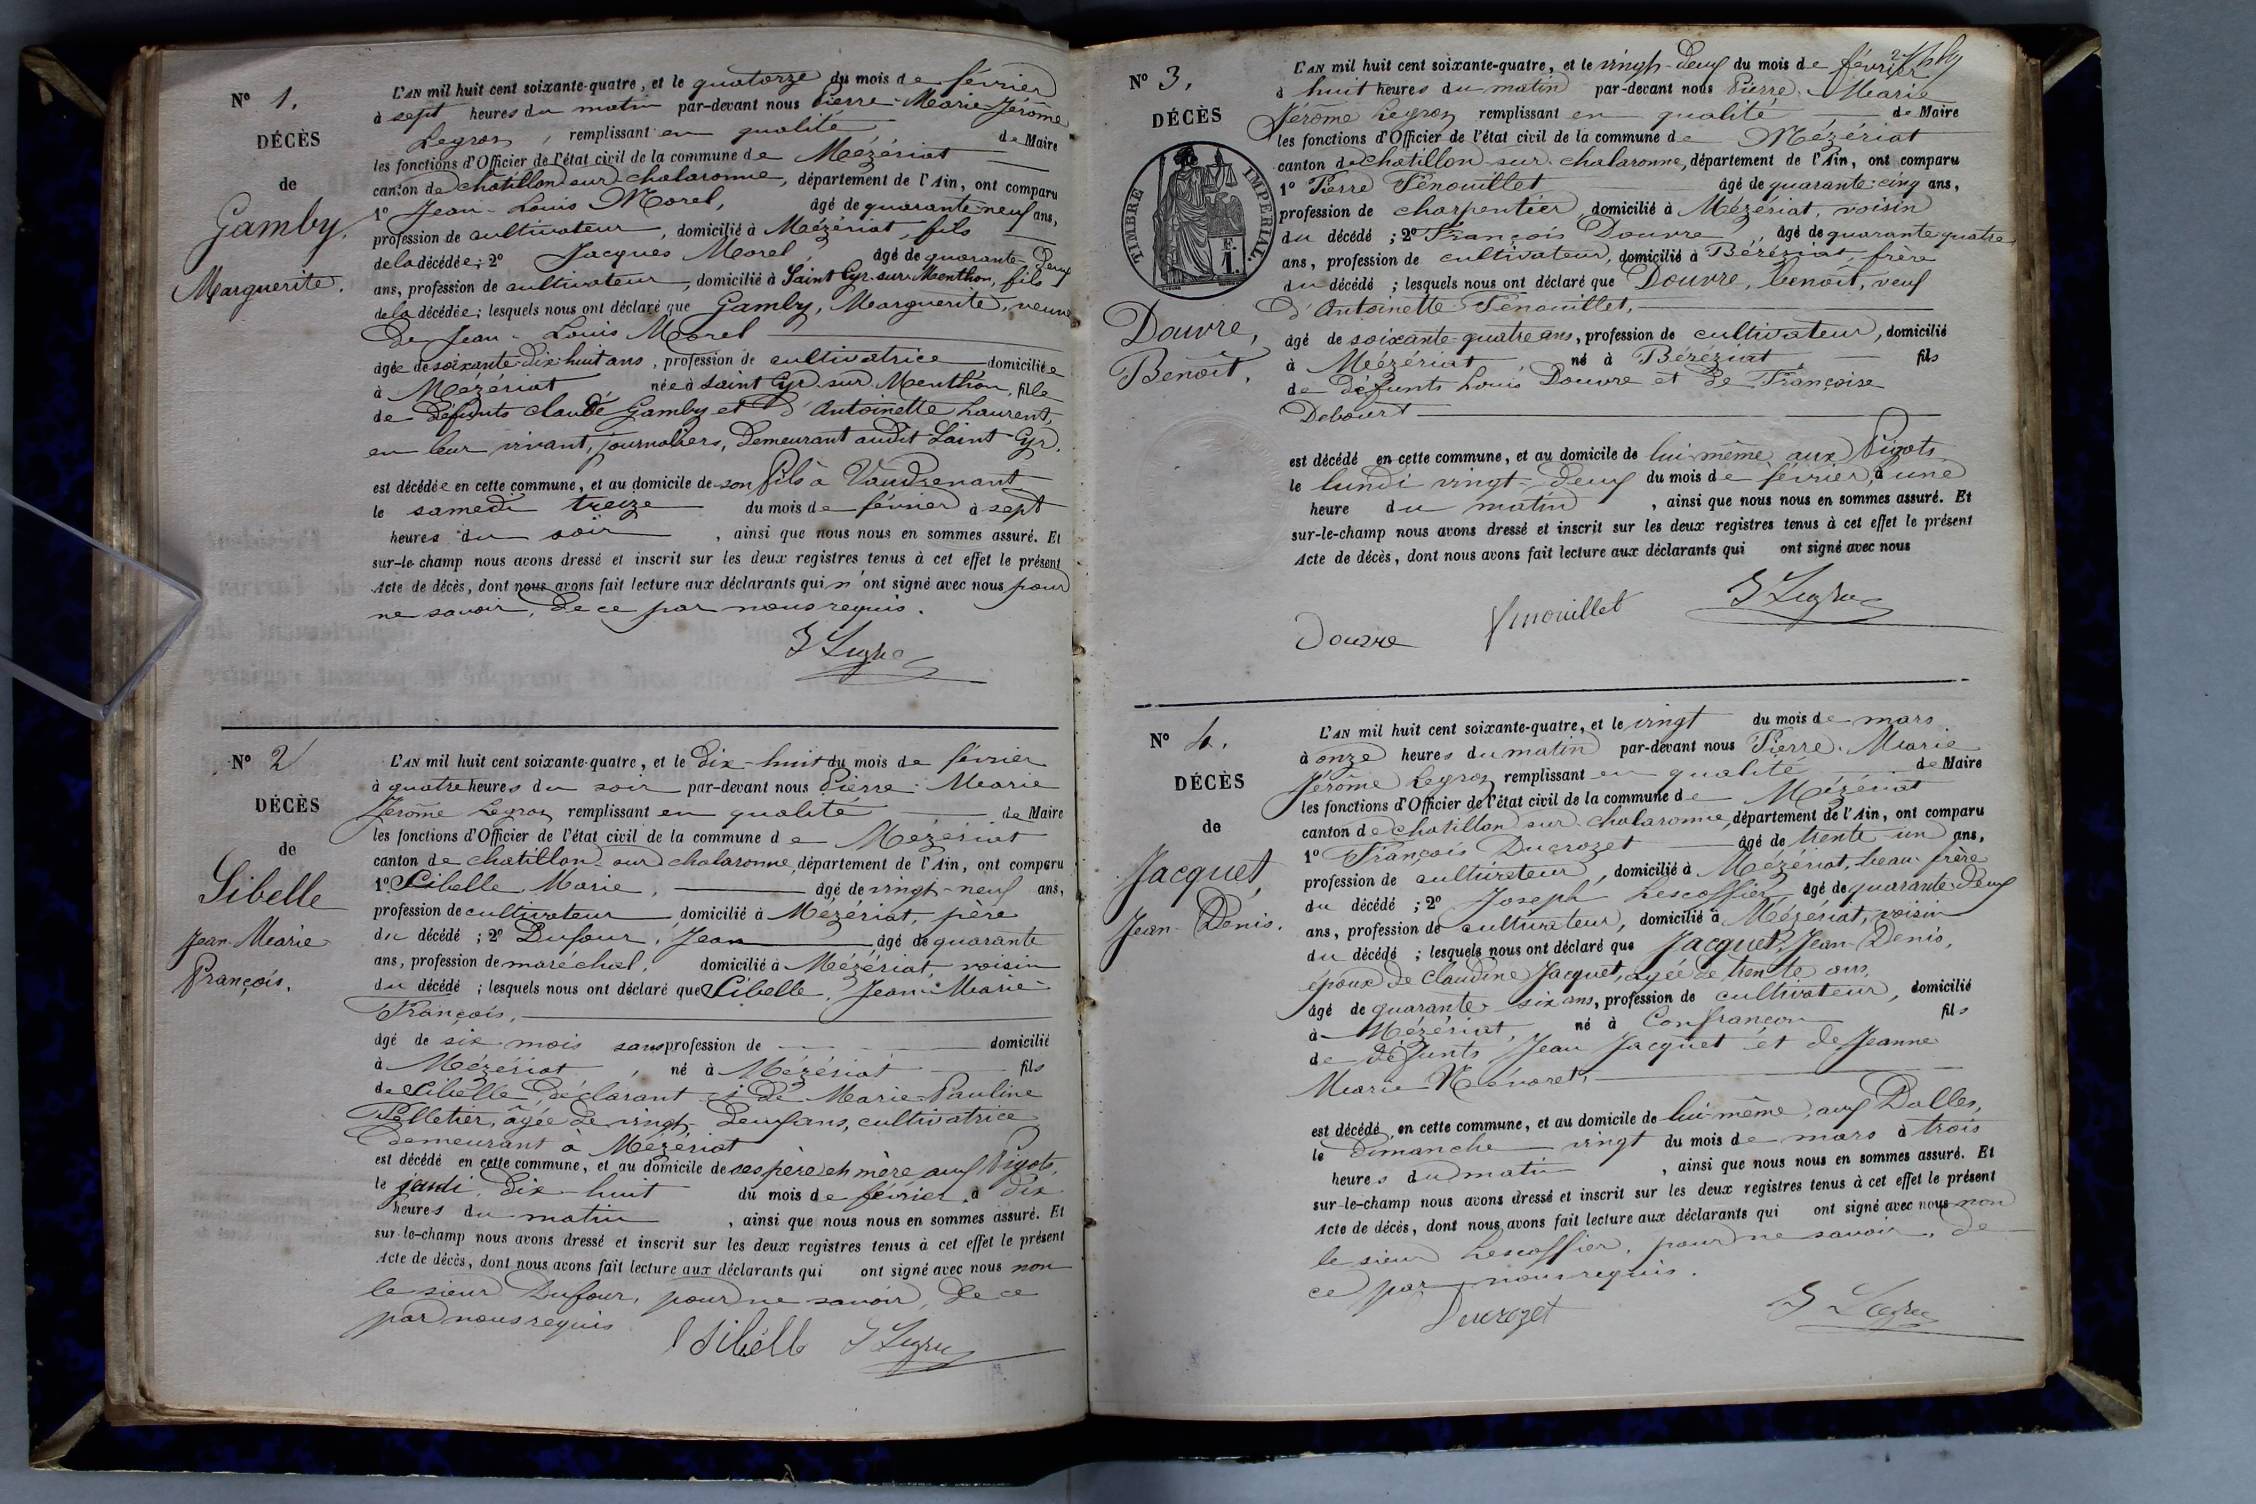 N° 1.
DÉCÈS
de
Gamby.
Marguerite.
L'AN mil huit cent soixante-quatre, et le quatorze du mois de février
à sept heures du matin par-devant nous Pierre-Marie-Jérôme
Legros, remplissant en qualité de Maire
les fonctions d'Officier de l'état civil de la commune de Mézériat
canton de châtillon sur chalaronne, département de l'Ain, ont comparu
1° Jean-Louis Morel, âgé de quarante-neuf ans,
profession de cultivateur, domicilié à Mézériat, fils
de la décédée; 2° Jacques Morel, âgé de quarante-deux
ans, profession de cultivateur, domicilié à Saint Cyr-sur-Menthon, fils
de la décédée; lesquels nous ont déclaré que Gamby, Marguerite, veuve
de Jean-Louis Morel
âgée de soixante-dix-huit ans, profession de cultivatrice domiciliée
à Mézériat née à Saint Cyr sur Menthon, fille
de défunts claude Gamby et d'Antoinette Laurent,
en leur vivant, journaliers, demeurant audit Saint Cyr.
est décédée en cette commune, et au domicile de son fils à Vaudrenant
le samedi treize du mois de février à sept
heures du soir, ainsi que nous nous en sommes assuré. Et
sur-le-champ nous avons dressé et inscrit sur les deux registres tenus à cet effet le présent
Acte de décès, dont nous avons fait lecture aux déclarants qui n'ont signé avec nous pour
ne savoir, de ce par nous requis.
N° 2
DÉCÈS
de
Sibelle
Jean-Marie
François.
L'AN mil huit cent soixante-quatre, et le dix-huit du mois de février
à quatre heures du soir par-devant nous Pierre-Marie
Jérôme Legros remplissant en qualité de Maire
les fonctions d'Officier de l'état civil de la commune de Mézériat
canton de chatillon-sur chalaronne, département de l'Ain, ont comparu
1° Sibelle, Marie, âgé de vingt-neuf ans,
profession de cultivateur domicilié à Mézériat, père
du décédé; 2° Dufour, Jean âgé de quarante
ans, profession de maréchal, domicilié à Mézériat, voisin
du décédé; lesquels nous ont déclaré que Sibelle, Jean-Marie-
François,
âgé de six mois sans profession de domicilié
à Mézériat, né à Mézériat fils
de Sibelle, déclarant et de Marie-Pauline
Pelletier, âgée de vingt-deux ans, cultivatrice
demeurant à Mézériat
est décédé en cette commune, et au domicile de ses père et mère aux Pigots,
le jeudi, dix-huit du mois de février, à dix
heures du matin, ainsi que nous nous en sommes assuré. Et
sur-le-champ nous avons dressé et inscrit sur les deux registres tenus à cet effet le présent
Acte de décès, dont nous avons fait lecture aux déclarants qui ont signé avec nous non
le sieur Dufour, pour ne savoir, de ce
par nous requis
Sibelle
N° 3.
DÉCÈS
TIMBRE IMPERIAL.
F.
1.
Douvre,
Benoît.
L'AN mil huit cent soixante-quatre, et le vingt-deux du mois de février
à huit heures du matin par-devant nous Pierre-Marie
Jérôme Legros remplissant en qualité de Maire
les fonctions d'Officier de l'état civil de la commune de Mézériat
canton de chatillon-sur-chalaronne, département de l'Ain, ont comparu
1° Pierre Penouillet âgé de quarante-cinq ans,
profession de charpentier, domicilié à Mézériat, voisin
du décédé; 2° François Douvre, âgé de quarante quatre
ans, profession de cultivateur, domicilié à Béréziat, frère
du décédé; lesquels nous ont déclaré que Douvre, benoît, veuf
d'Antoinette Penouillet,
âgé de soixante-quatre ans, profession de cultivateur, domicilié
à Mézériat, né à Béréziat, fils
de défunts Louis Douvre et de Françoise
Debourt
est décédé en cette commune, et au domicile de lui-même aux Pigots
le lundi vingt-deux du mois de février, à une
heure du matin, ainsi que nous nous en sommes assuré. Et
sur-le-champ nous avons dressé et inscrit sur les deux registres tenus à cet effet le présent
Acte de décès, dont nous avons fait lecture aux déclarants qui ont signé avec nous
Douvre
N° 4.
DÉCÈS
de
Jacquet,
Jean-Denis.
L'AN mil huit cent soixante-quatre, et le vingt du mois de mars
à onze heures du matin par-devant nous Pierre-Marie
Jérôme Legros remplissant en qualité de Maire
les fonctions d'Officier de l'état civil de la commune de Mézériat
canton de chatillon sur chalaronne, département de l'Ain, ont comparu
1° François Ducrozet âgé de trente-un ans,
profession de cultivateur, domicilié à Mézériat, beau-frère
du décédé; 2° Joseph Lescoffier, âgé de quarante-deux
ans, profession de cultivateur, domicilié à Mézériat, voisin
du décédé; lesquels nous ont déclaré que Jacquet, Jean-Denis,
époux de Claudine Jacquet, agée de trente ans,
âgé de quarante-six ans, profession de cultivateur, domicilié
à Mézériat, né à Confrançon fils
de défunts Jean Jacquet et de Jeanne
Marie
est décédé en cette commune, et au domicile de lui-même, aux Dalles,
le Dimanche vingt du mois de mars à trois
heures du matin, ainsi que nous nous en sommes assuré. Et
sur-le-champ nous avons dressé et inscrit sur les deux registres tenus à cet effet le présent
Acte de décès, dont nous avons fait lecture aux déclarants qui ont signé avec nous non
le sieur Lescoffier, pour ne savoir, de
ce par nous requis.
Ducrozet